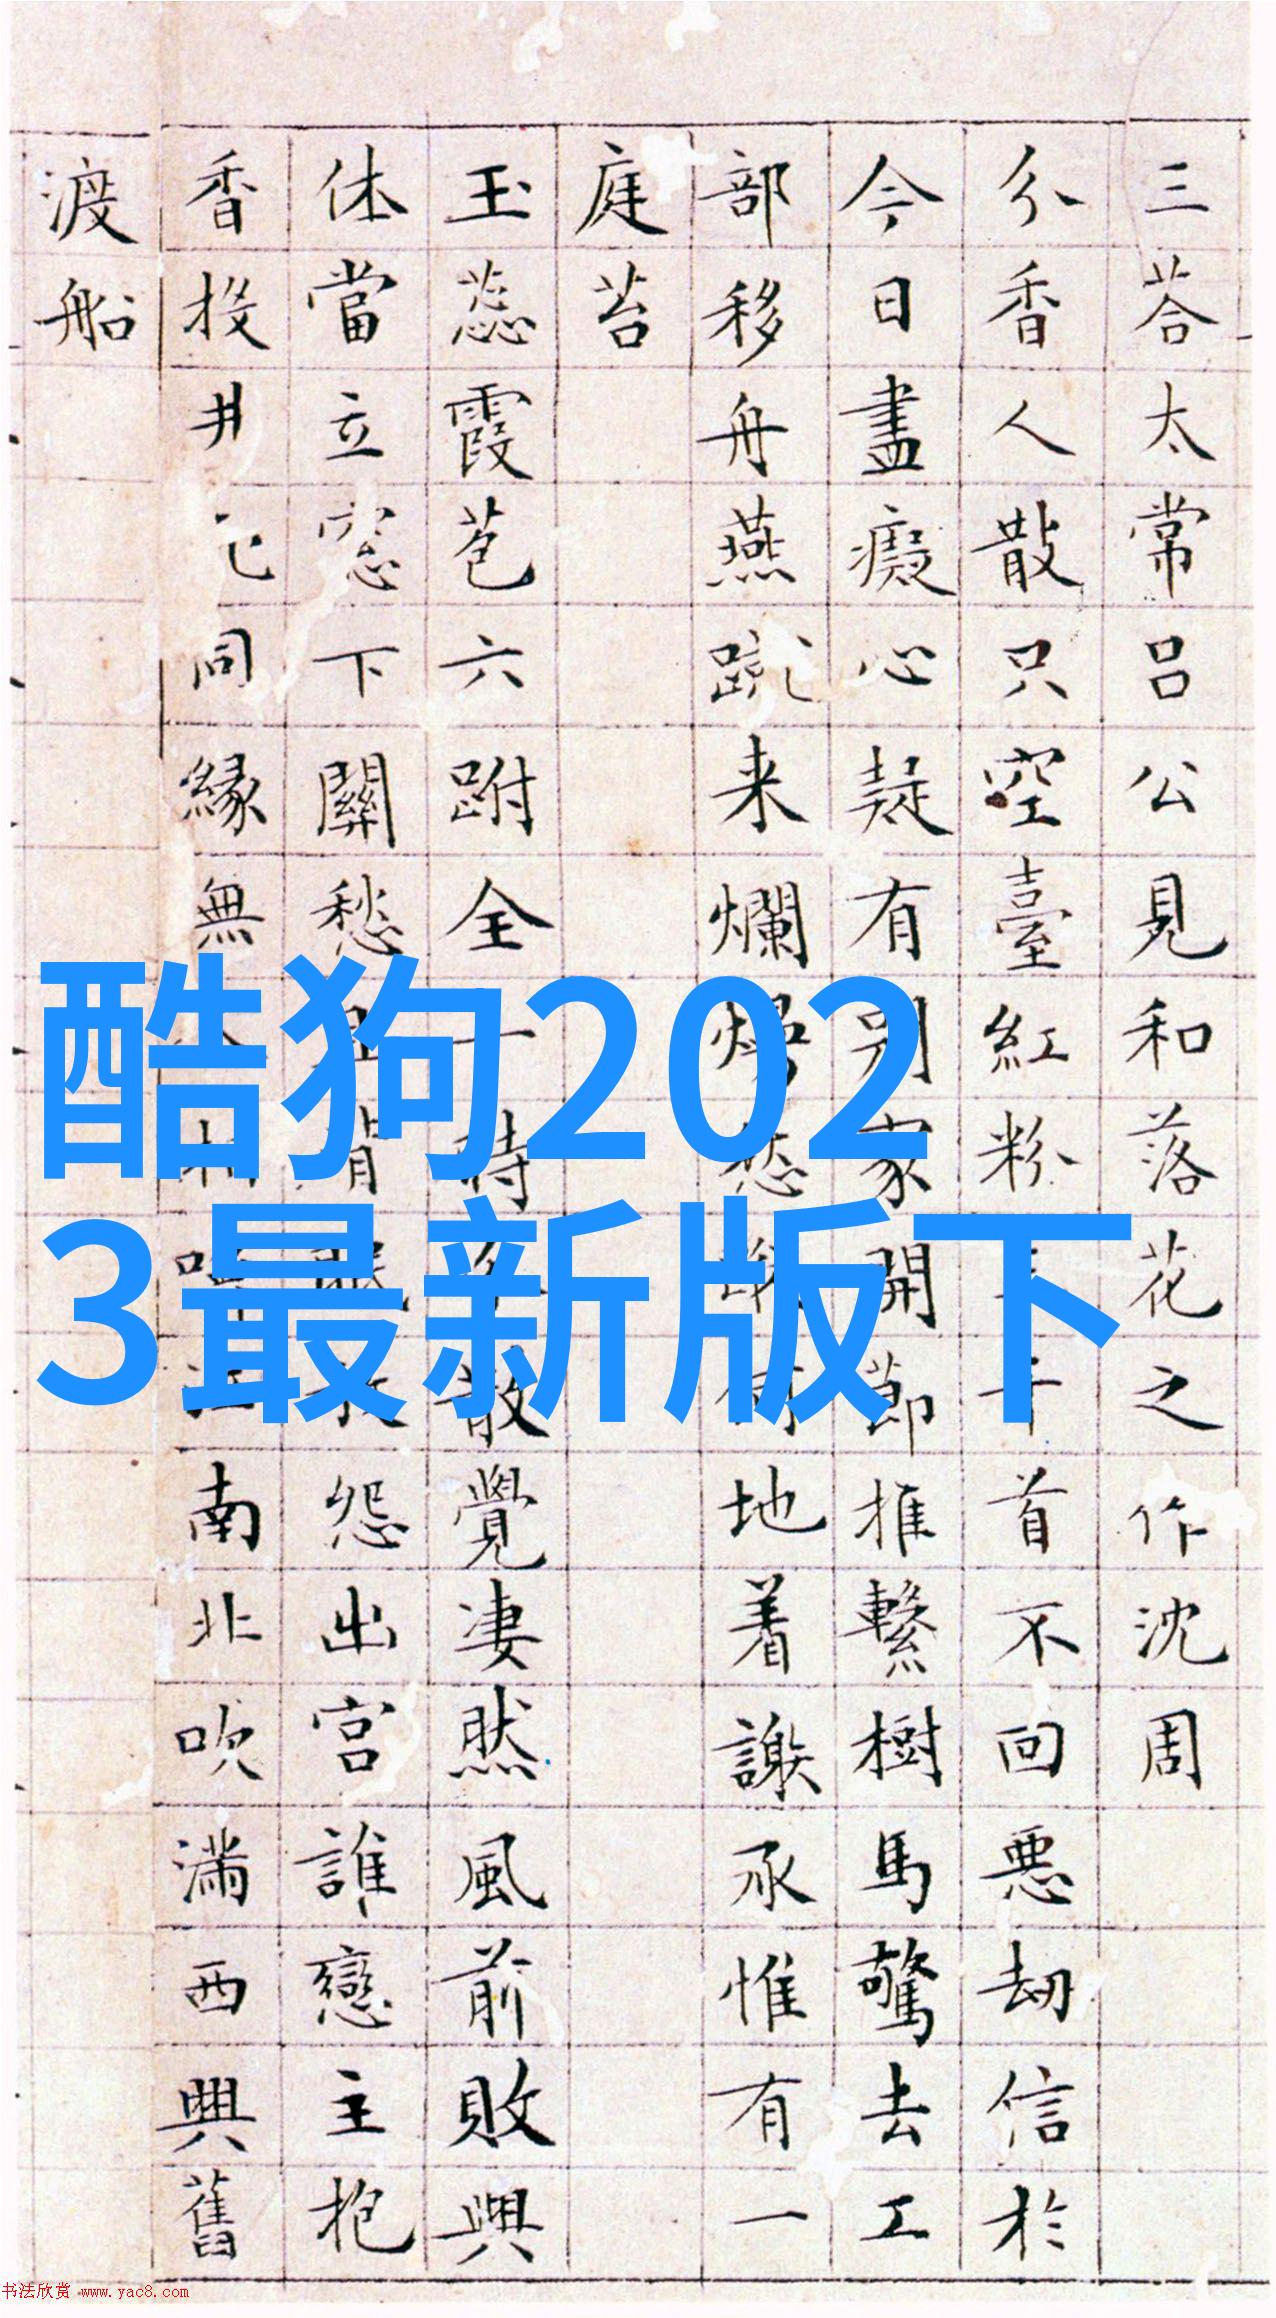 三荅太常呂公見和落花之作沈周
分香人散只空臺紅粉千首不回悪劫信於
今日盡癡心疑有別家開節推繫樹馬驚去工
部移舟燕蹴来爛熳愁何地着謝承惟有一
庭苔
玉蕊霞苞六跗全一時散覺凄然風前敗興
休當立窓下關愁且背眠怨出宮誰戀主抱
香投井同縁無南北吹滿西興舊
渡船
酷狗202
3最新版下
书法欣赏 www.yac8.com